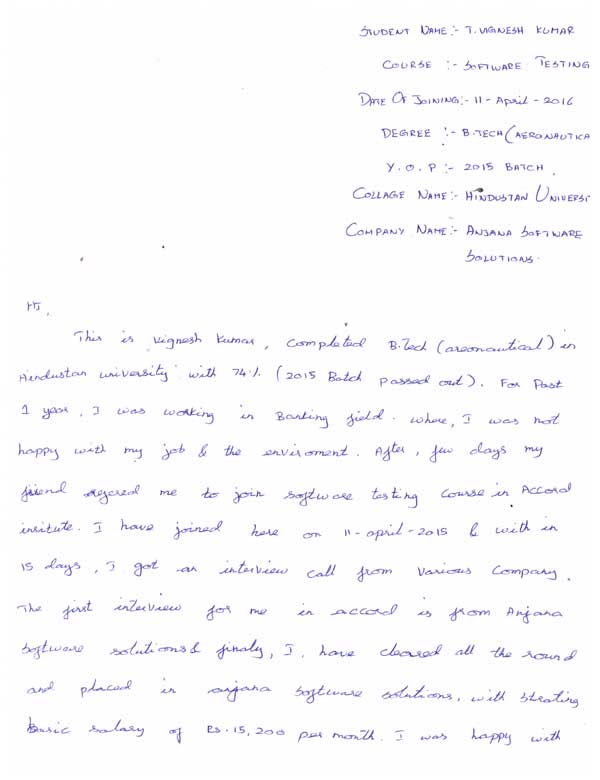 STUDENT NAME:- T. VIGNESH KUMAR
COURSE :- SOFTWARE TESTING
DATE OF JOINING:- 11 - April - 2016
DEGREE :- B.TECH (AERONAUTICA
Y.O.P :- 2015 BATCH
COLLAGE NAME:- HINDUSTAN UNIVERSI
COMPANY NAME:- ANJANA SOFTWARE
SOLUTIONS.
Hi,
This is Vignesh Kumar, completed B.Tech (areonautical) in
Hindustan university with 74% (2015 Batch passed out). For Past
1 year, I was working in Banking field. where, I was not
happy with my job & the enviroment. After, few days my
friend refered me to join software testing course in Accord
insitute. I have joined here on 11-april-2015 & with in
15 days, I got an interview call from Various Company.
The first interview for me in accord is from Anjana
Software solutions & finaly, I have cleared all the round
and placed in anjana software solutions, with strating
Basic salary of Rs. 15,200 per month. I was happy with